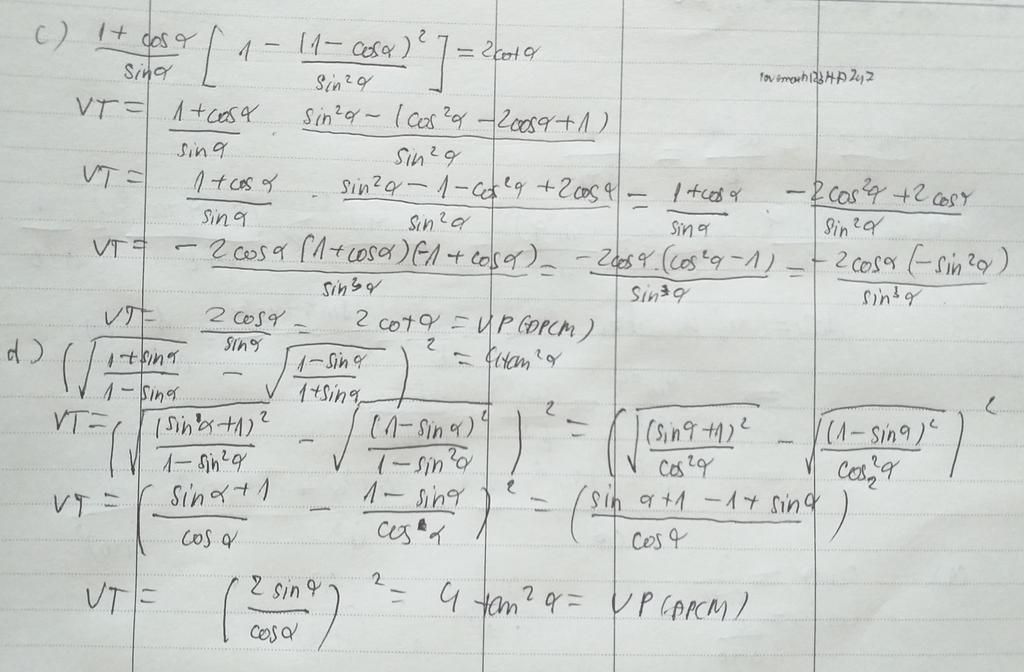 c) (1 + cosα)/(sinα) [ 1 - ((1 - cosα)²)/(sin²α) ] = 2cotα
VT = (1 + cosα)/(sinα) (sin²α - (cos²α - 2cosα + 1))/(sin²α)
VT = (1 + cosα)/(sinα) . (sin²α - 1 - cos²α + 2cosα)/(sin²α) = (1 + cosα)/(sinα) . (-2cos²α + 2cosα)/(sin²α)
VT = (-2cosα (1 + cosα)(-1 + cosα))/(sin³α) = (-2cosα.(cos²α - 1))/(sin³α) = (-2cosα (-sin²α))/(sin³α)
VT = (2cosα)/(sinα) = 2cotα = VP (ĐPCM)
d) (√((1 + sinα)/(1 - sinα)) - √((1 - sinα)/(1 + sinα)))² = 4tan²α
VT = (√(((sinα + 1)²)/(1 - sin²α)) - √(((1 - sinα)²)/(1 - sin²α)))² = (√(((sinα + 1)²)/(cos²α)) - √(((1 - sinα)²)/(cos²α)))²
VT = ((sinα + 1)/(cosα) - (1 - sinα)/(cosα))² = ((sinα + 1 - 1 + sinα)/(cosα))
VT = ((2sinα)/(cosα))² = 4tan²α = VP (ĐPCM)